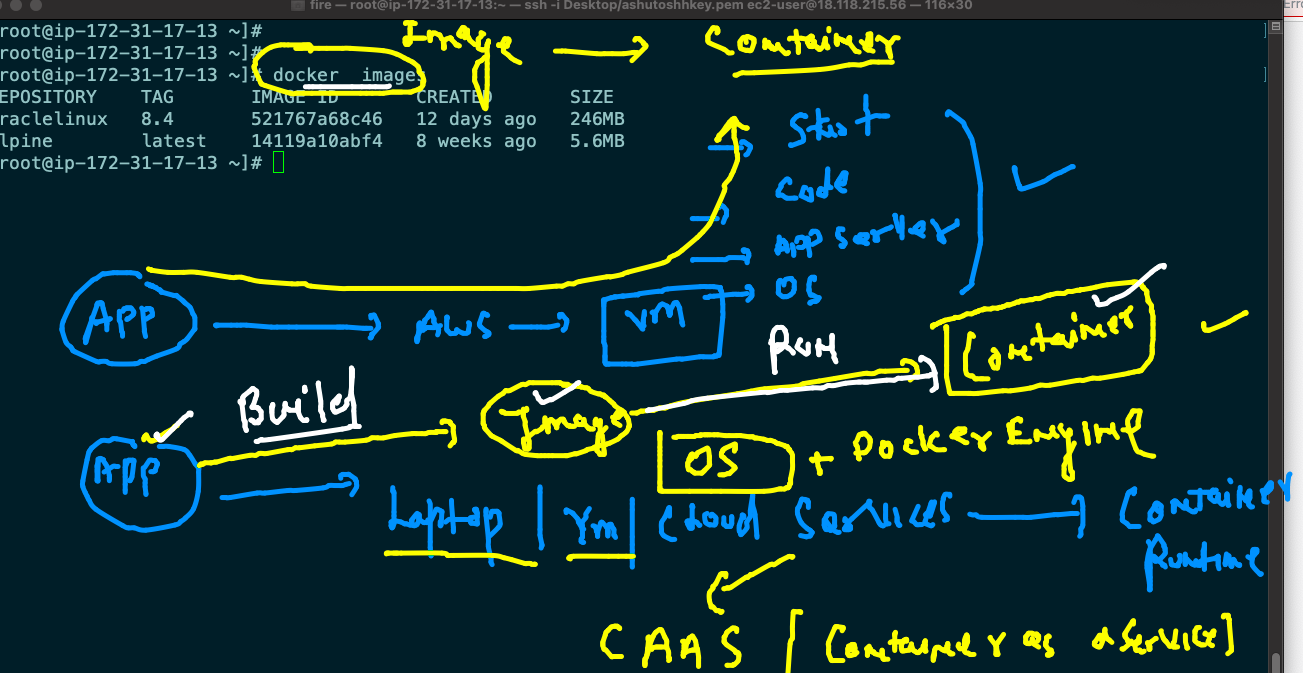 fire — root@ip-172-31-17-13:~ — ssh -i Desktop/ashutoshhkey.pem ec2-user@18.118.215.56 — 116×30
root@ip-172-31-17-13 ~]#
root@ip-172-31-17-13 ~]#
root@ip-172-31-17-13 ~]# docker  images
EPOSITORY    TAG       IMAGE ID       CREATED       SIZE
raclelinux   8.4       521767a68c46   12 days ago   246MB
lpine        latest    14119a10abf4   8 weeks ago   5.6MB
root@ip-172-31-17-13 ~]#
Image → Container
Start
Code
App server
OS
App → AWS → VM
Run
Container
Build
App
Image
OS + Docker Engine
Laptop | Vm | Cloud Services → Container Runtime
CAAS [Container as a service]